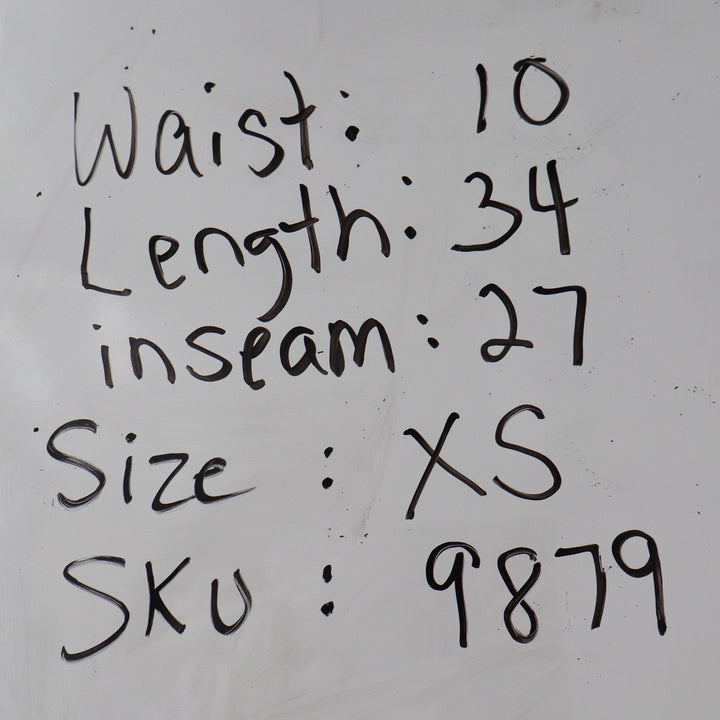 Waist: 10
Length: 34
inseam: 27
Size : XS
SKU : 9879